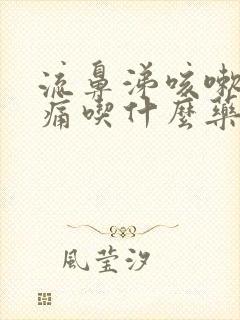 流鼻涕咳嗽
痛喫什麼藥
風莹汐